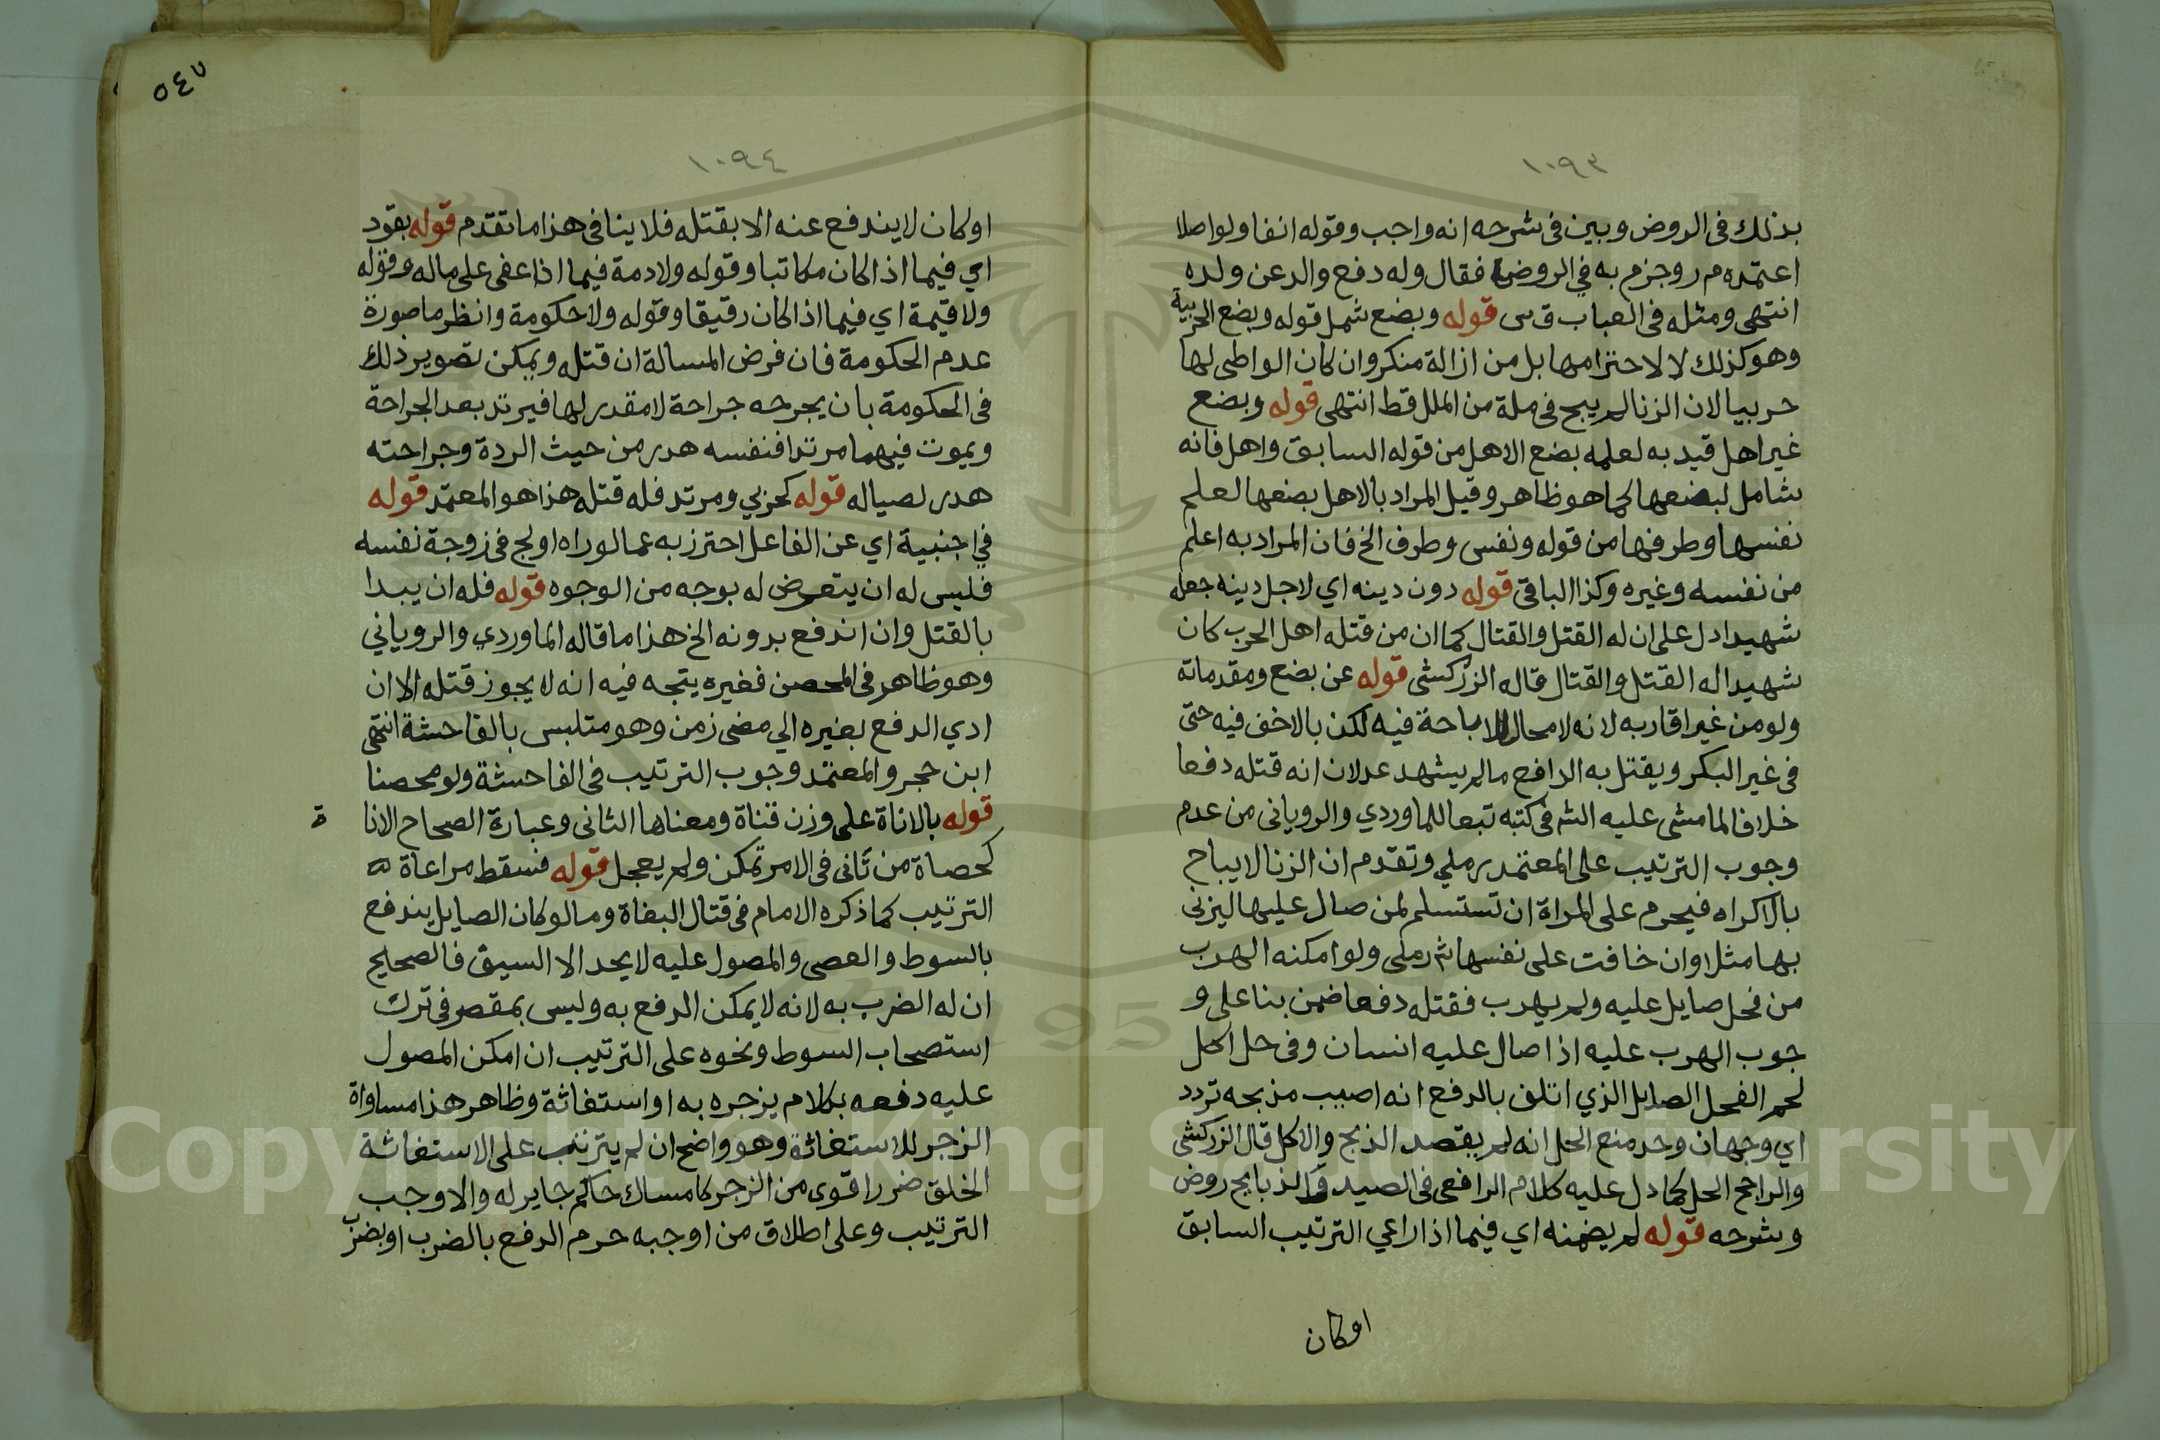 ١٠٩٣
بذلك في الروض وبين في شرحه انه واجب وقوله انفا ولو اصلا
اعتمده م ر وجزم به في الروض فقال وله دفع والد عن ولده
انتهى ومثله في العباب ق س قوله وبضع شمل قوله وبضع الحربية
وهو كذلك لا لاحترامها بل من ازالة منكر وان كان الواطى لها
حربيا لان الزنا لم يبح في ملة من الملل قط انتهى قوله وبضع
غير اهل قيد به لعلمه بضع الاهل من قوله السابق واهل فانه
شامل لبضعها كما هو ظاهر وقيل المراد بالاهل بضعها لعلم
نفسها وطرفها من قوله ونفس وطرف الخ فان المراد به اعلم
من نفسه وغيره وكذا الباقي قوله دون دينه اي لاجل دينه جعله
شهيدا دل على ان له القتل والقتال كما ان من قتله اهل الحرب كان
شهيدا له القتل والقتال قاله الزركشى قوله عن بضع ومقدماته
ولو من غير اقاربه لانه لا مجال للاباحة فيه لكن بالاخف فيه حتى
في غير البكر ويقتل به الدافع مالم يشهد عدلان انه قتله دفعا
خلافا لما مشى عليه الشم في كتبه تبعا للماوردي والرويانى من عدم
وجوب الترتيب على المعتمد رملي وتقدم ان الزنا لا يباح
بالاكراه فيحرم على المراة ان تستسلم لمن صال عليها ليزنى
بها مثلا وان خافت على نفسها شم رملى ولو امكنه الهرب
من فحل صايل عليه ولم يهرب فقتله دفعا ضمن بنا على و
جوب الهرب عليه اذا صال عليه انسان وفى حل اكل
لحم الفحل الصايل الذي اتلف بالدفع انه اصيب مذبحه تردد
اي وجهان وحد منع الحل انه لم يقصد الذبح والاكل قال الزركشى
والراجح الحل كما دل عليه كلام الرافعى في الصيد والذبايح روض
وشرحه قوله لم يضمنه اي فيما اذا راعي الترتيب السابق
اوكان
٥٤٧
١٠٩٤
اوكان لا يندفع عنه الا بقتله فلا ينافى هذا ما تقدم قوله بقود
اي فيما اذا كان مكاتبا وقوله ولا دمة فيما اذا عفى على ماله وقوله
ولا قيمة اي فيما اذا كان رقيقا وقوله ولا حكومة وانظر ما صورة
عدم الحكومة فان فرض المسالة ان قتل ويمكن تصوير ذلك
في الحكومة بان يجرحه جراحة لا مقدر لها فيرتد بعد الجراحة
ويموت فيهما مرتدا فنفسه هدر من حيث الردة وجراحته
هدر لصياله قوله كحربي ومرتد فله قتله هذا هو المعتمد قوله
في اجنبية اي عن الفاعل احترز به عما لو راه اولج في زوجة نفسه
فليس له ان يتعرض له بوجه من الوجوه قوله فله ان يبدا
بالقتل وان اندفع بدونه الخ هذا ما قاله الماوردي والروياني
وهو ظاهر في المحصن فغيره يتجه فيه انه لا يجوز قتله الا ان
ادي الدفع بغيره الي مضى زمن وهو متلبس بالفاحشة انتهى
ابن حجر والمعتمد وجوب الترتيب في الفاحشة ولو محصنا
قوله بالاناة على وزن قناة ومعناها الثانى وعبارة الصحاح الانا
ة
كحصاة من تأنى في الامر تمكن ولم يعجل قوله فسقط مراعاة
الترتيب كما ذكره الامام في قتال البغاة ومالو كان الصايل يندفع
بالسوط والعصى والمصول عليه لا يجد الا السيف فالصحيح
ان له الضرب به لانه لا يمكن الدفع به وليس بمقصر في ترك
استصحاب السوط ونحوه على الترتيب ان امكن المصول
عليه دفعه بكلام يزجره به او استغاثة وظاهر هذا مساواة
الزجر للاستغاثة وهو واضح ان لم يترتب على الاستغاثة
الحلق ضررا قوى من الزجر كامساك حاكم جاير له والاوجب
الترتيب وعلى اطلاق من اوجبه حرم الدفع بالضرب او بضرب
Copyright © King Saud University
1957